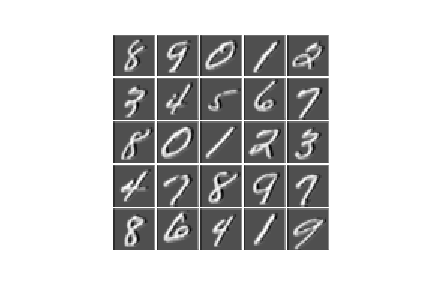 8 9 0 1 2
3 4 5 6 7
8 0 1 2 3
4 7 8 9 7
8 6 4 1 9